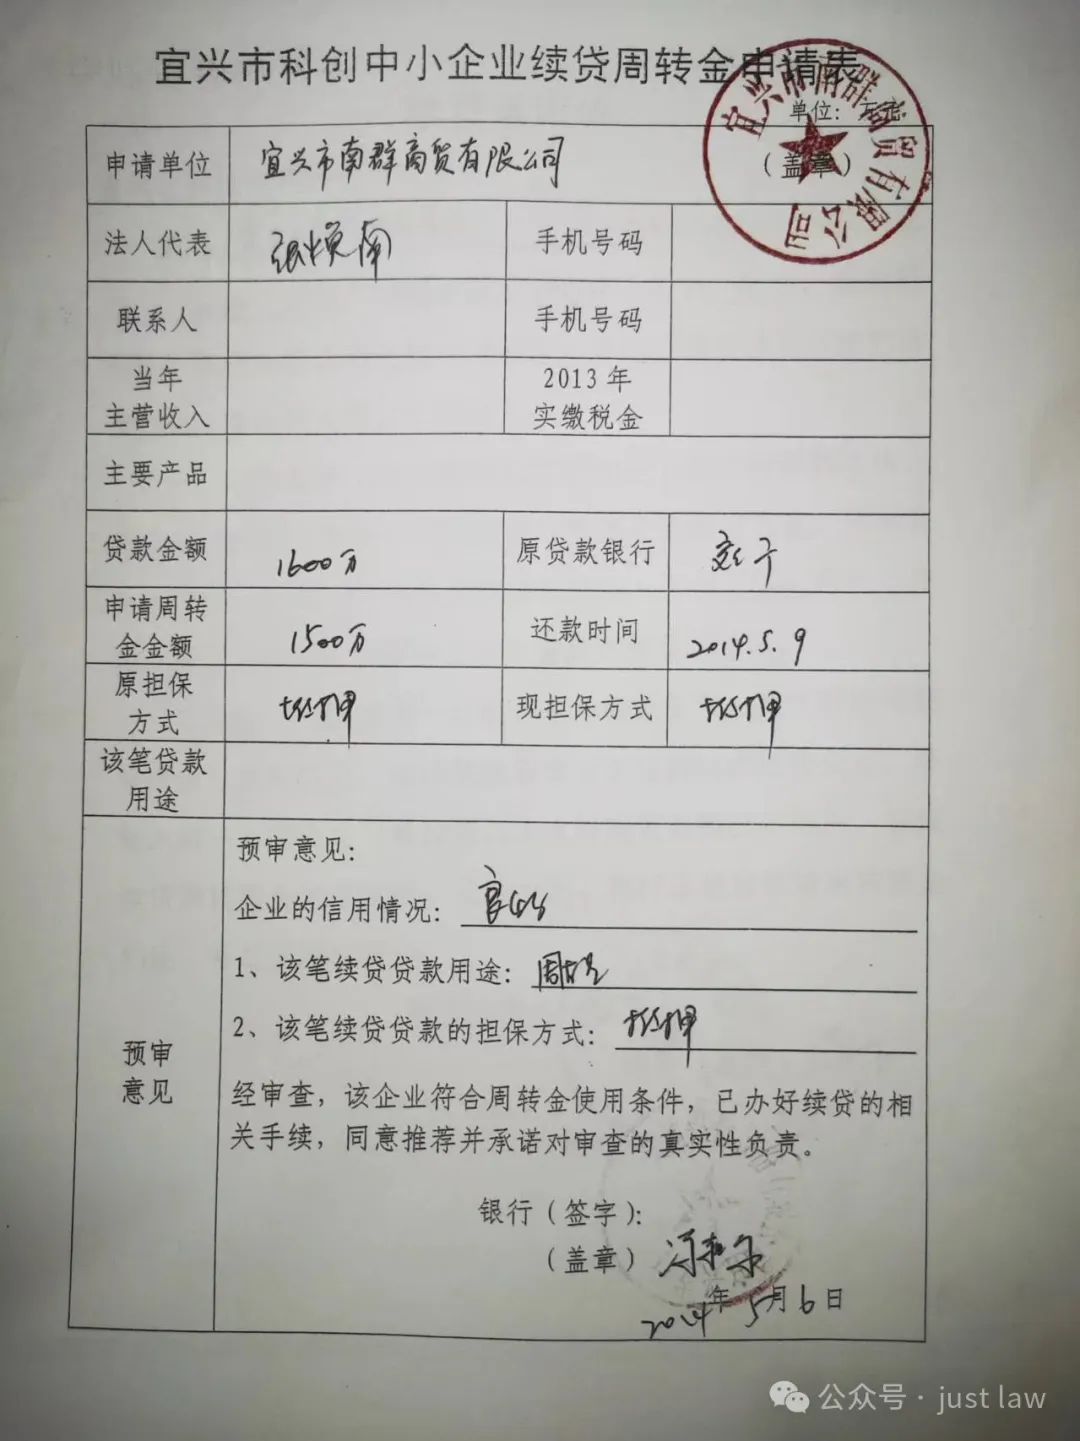 宜兴市科创中小企业续贷周转金申请表
单位：万元
申请单位 宜兴市南群商贸有限公司 （盖章）
宜兴市南群商贸有限公司
法人代表 手机号码
联系人 手机号码
当年
主营收入
2013年
实缴税金
主要产品
贷款金额 1600万 原贷款银行
申请周转
金金额
1500万 还款时间 2014.5.9
原担保
方式
抵押 现担保方式 抵押
该笔贷款
用途
预审
意见
预审意见：
企业的信用情况：
1、该笔续贷贷款用途：
2、该笔续贷贷款的担保方式：抵押
经审查，该企业符合周转金使用条件，已办好续贷的相
关手续，同意推荐并承诺对审查的真实性负责。
银行（签字）：
（盖章）
2014年5月6日
公众号 · just law